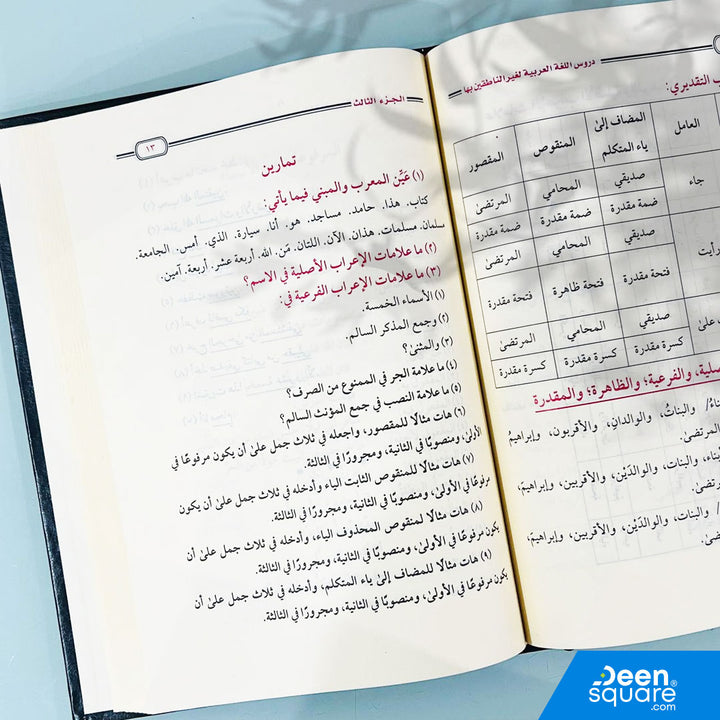 دروس اللغة العربية لغير الناطقين بها
التقديري:
العامل
المضاف إلى ياء المتكلم
المنقوص
المقصور
جاء
صديقي
المحامي
المرتضىٰ
ضمة مقدرة
ضمة مقدرة
ضمة مقدرة
رأيت
صديقي
المحامي
المرتضىٰ
فتحة مقدرة
فتحة ظاهرة
فتحة مقدرة
علىٰ
صديقي
المحامي
المرتضىٰ
كسرة مقدرة
كسرة مقدرة
كسرة مقدرة
والفرعية؛ والظاهرة؛ والمقدرة
والبناتُ، والوالدانِ، والأقربون، وإبراهيمُ
المرتضىٰ.
والبنات، والوالدَيْن، والأقربين، وإبراهيمَ،
والبنات، والوالدَيْن، والأقربين، وإبراهيمَ،
الجزء الثالث
١٣
تمارين
(١) عَيِّن المعرب والمبني فيما يأتي:
كتاب. هذا. حامد. مساجد. هو. أنا. سيارة. الذي. أمس. الجامعة.
سلمان. مسلمات. هذان. الآن. اللتان. مَن. الله. أربعة عشر. أربعة. آمين.
(٢) ما علامات الإعراب الأصلية في الاسم؟
(٣) ما علامات الإعراب الفرعية في:
(١) الأسماء الخمسة.
(٢) وجمع المذكر السالم.
(٣) والمثنىٰ؟
(٤) ما علامة الجر في الممنوع من الصرف؟
(٥) ما علامة النصب في جمع المؤنث السالم؟
(٦) هات مثالًا للمقصور، واجعله في ثلاث جمل علىٰ أن يكون مرفوعًا في
الأولىٰ، ومنصوبًا في الثانية، ومجرورًا في الثالثة.
(٧) هات مثالًا للمنقوص الثابت الياء وأدخله في ثلاث جمل علىٰ أن يكون
مرفوعًا في الأولىٰ، ومنصوبًا في الثانية، ومجرورًا في الثالثة.
(٨) هات مثالًا لمنقوص المحذوف الياء، وأدخله في ثلاث جمل علىٰ أن
يكون مرفوعًا في الأولىٰ، ومنصوبًا في الثانية، ومجرورًا في الثالثة.
(٩) هات مثالًا للمضاف إلىٰ ياء المتكلم، وأدخله في ثلاث جمل علىٰ أن
يكون مرفوعًا في الأولىٰ، ومنصوبًا في الثانية، ومجرورًا في الثالثة.
Deen
square®
.com